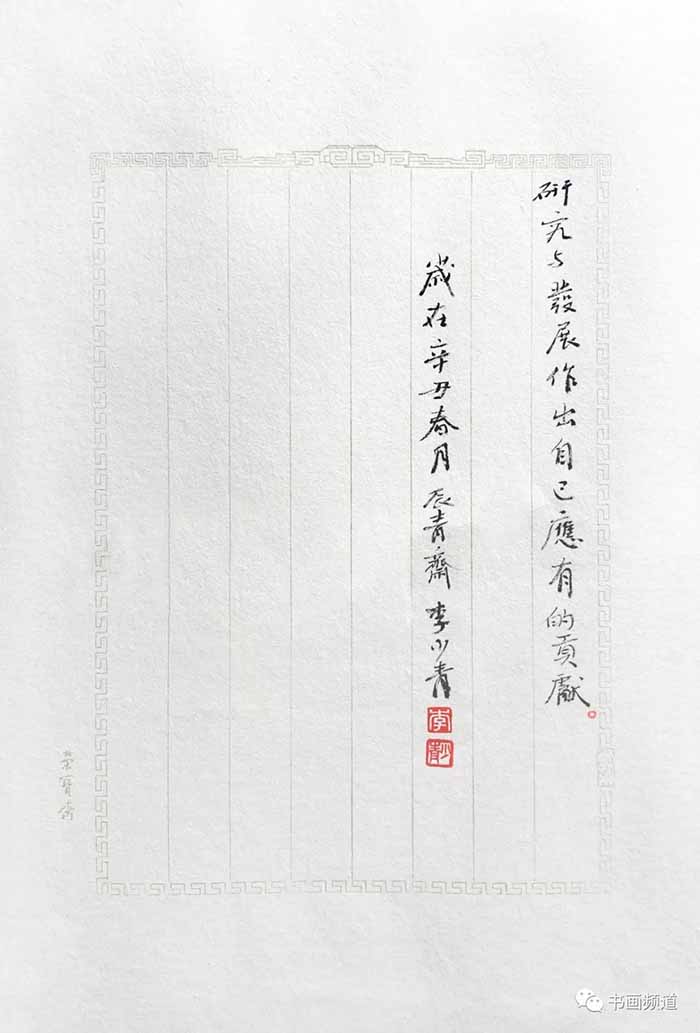 研究与發展作出自己應有的貢獻
歲在辛丑春月辰青齋李小青
榮寶齋
书画频道